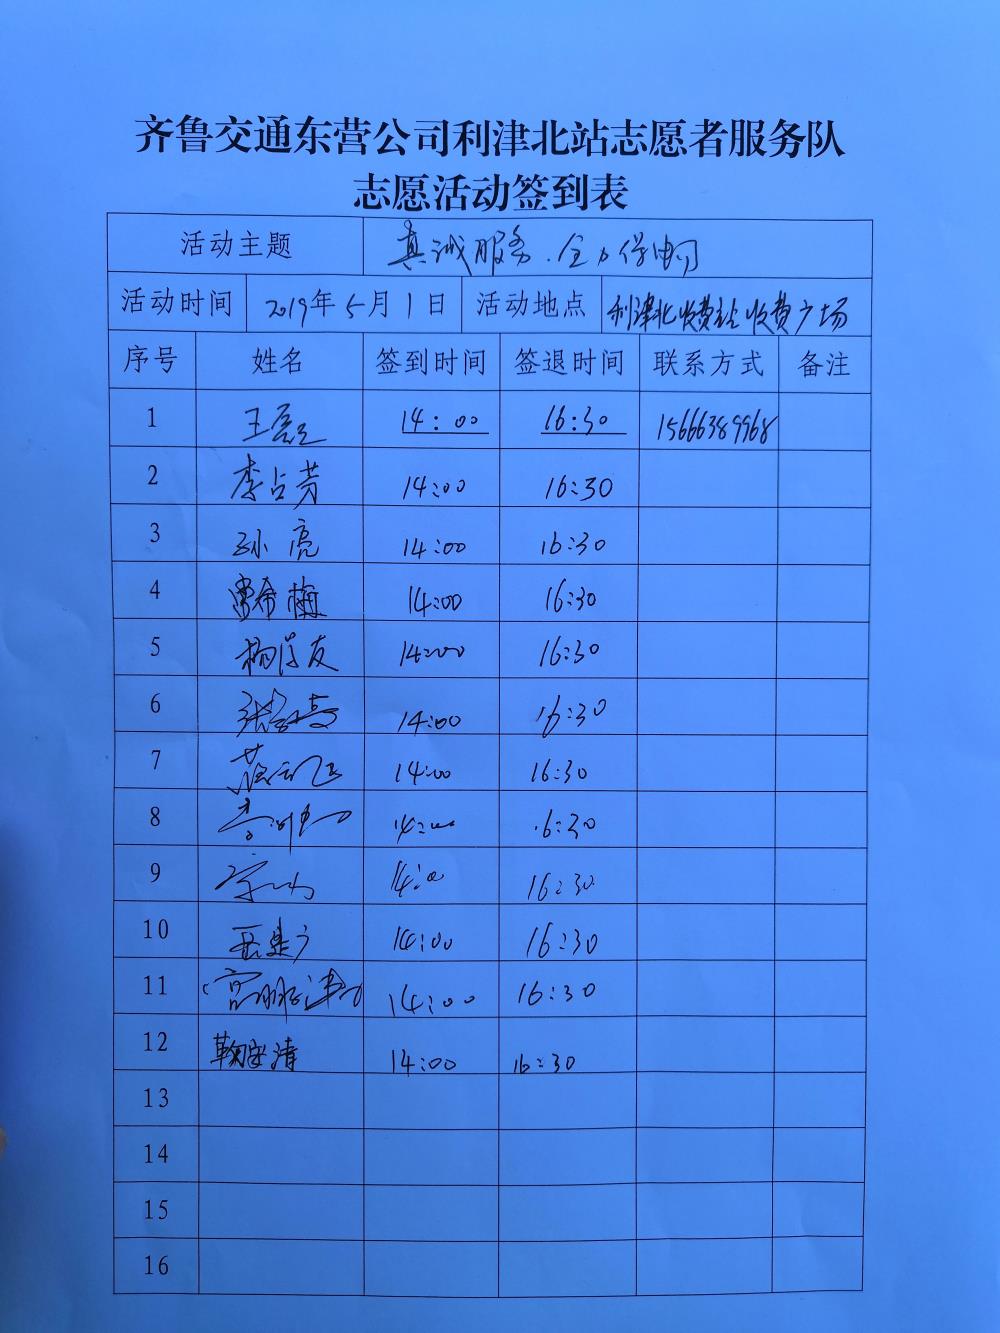 齐鲁交通东营公司利津北站志愿者服务队
志愿活动签到表
活动主题 真诚服务.全力保畅
活动时间 2019年5月1日 活动地点 利津北收费站收费广场
序号 姓名 签到时间 签退时间 联系方式 备注
1 王磊 14:00 16:30 15666389968
2 李占芳 14:00 16:30
3 孙亮 14:00 16:30
4 曹希梅 14:00 16:30
5 杨 友 14:00 16:30
6 张 14:00 16:30
7 14:00 16:30
8 李 14:00 16:30
9 14:00 16:30
10 14:00 16:30
11 宫 14:00 16:30
12 鞠 清 14:00 16:30
13
14
15
16